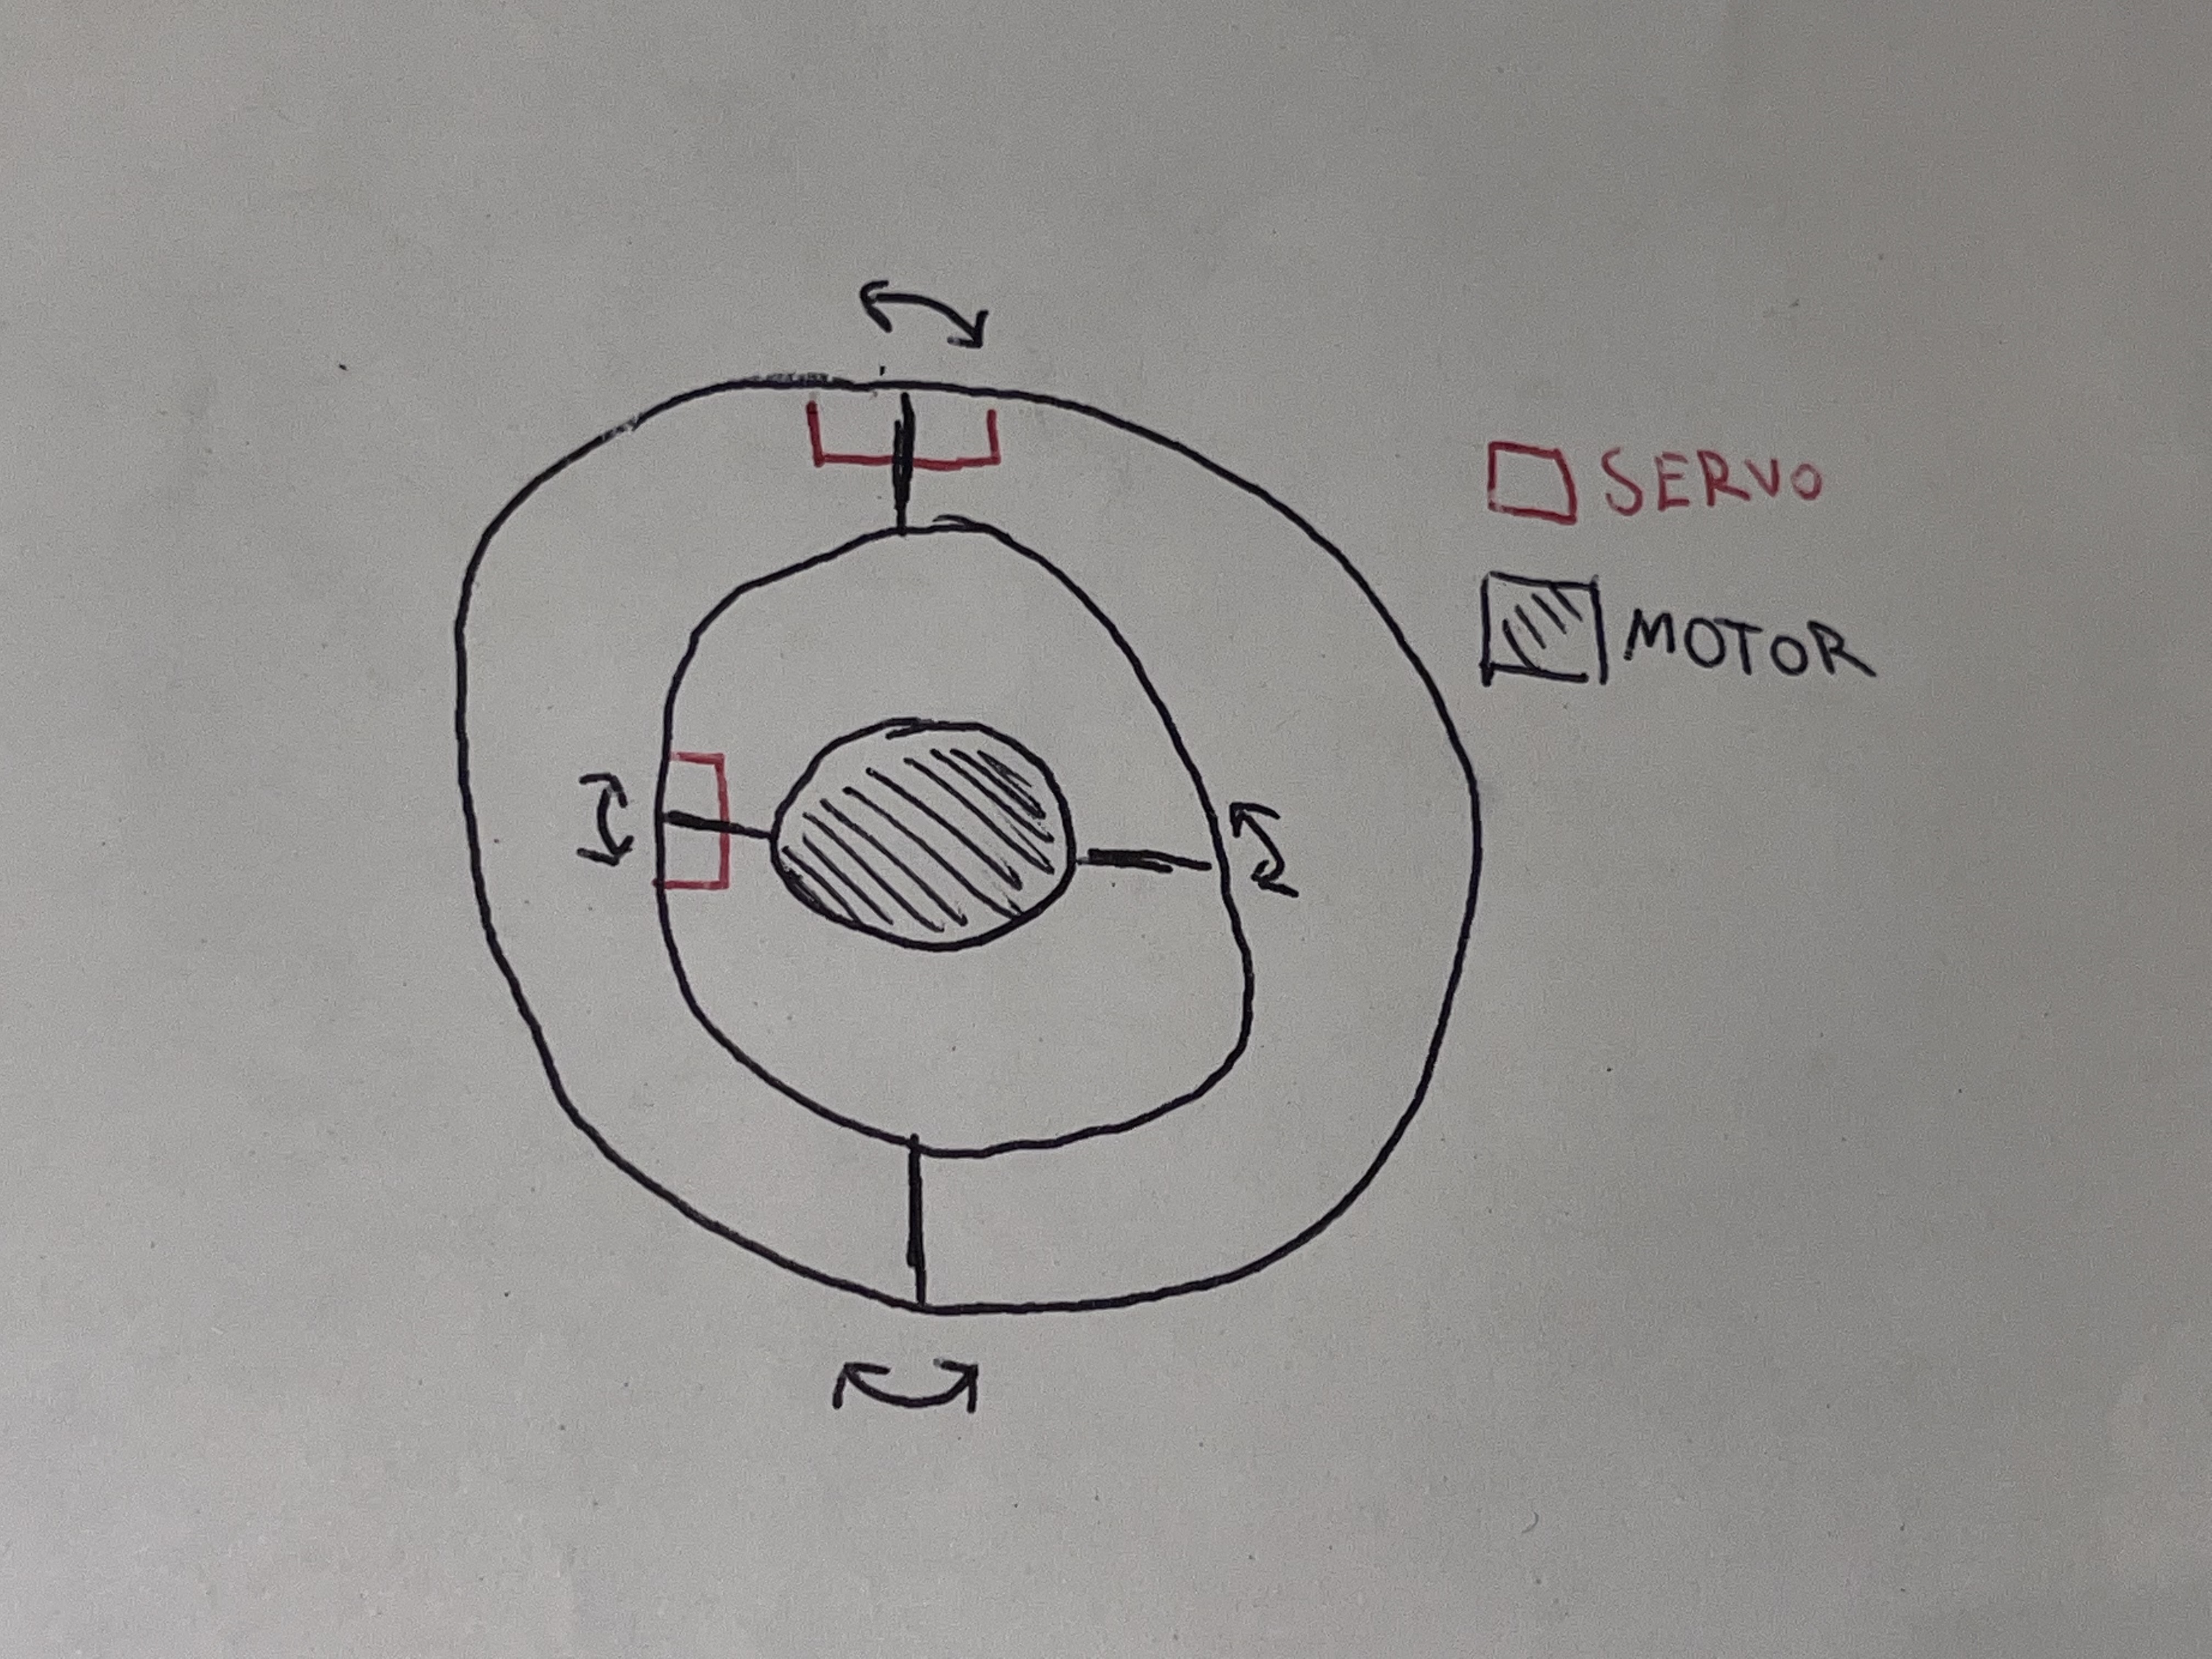 SERVO
MOTOR